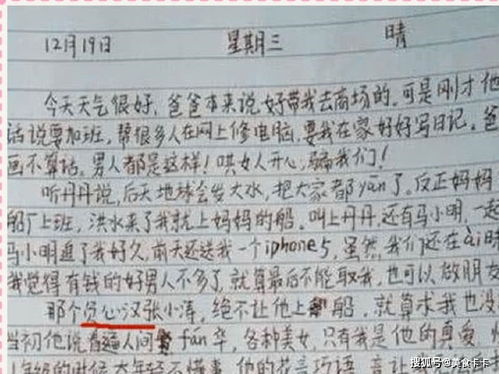 12月19日 星期三 晴
今天天气很好，爸爸本来说好带我去商场的，可是刚才他
话说要加班，帮很多人在网上修电脑，要我在家好好写日记。爸
画不算话。男人都是这样！哄女人开心，骗我们！
听丹丹说，后天地球会发大水，把大家都yān了，反正妈妈
船厂上班，洪水来了我就上妈妈的船。叫上丹丹，还有马小明，一起
马小明追了我好久，前天还送我一个iphone5，虽然，我们还在ài时
我觉得有钱的好男人不多了，就算最后不能取我，也可以做朋友
那个负心汉张小涛，绝不让他上船，就算求我也没
当初他说看遍人间fán华，各种美女，只有我是他的真爱，
搜狐号@美食卡卡